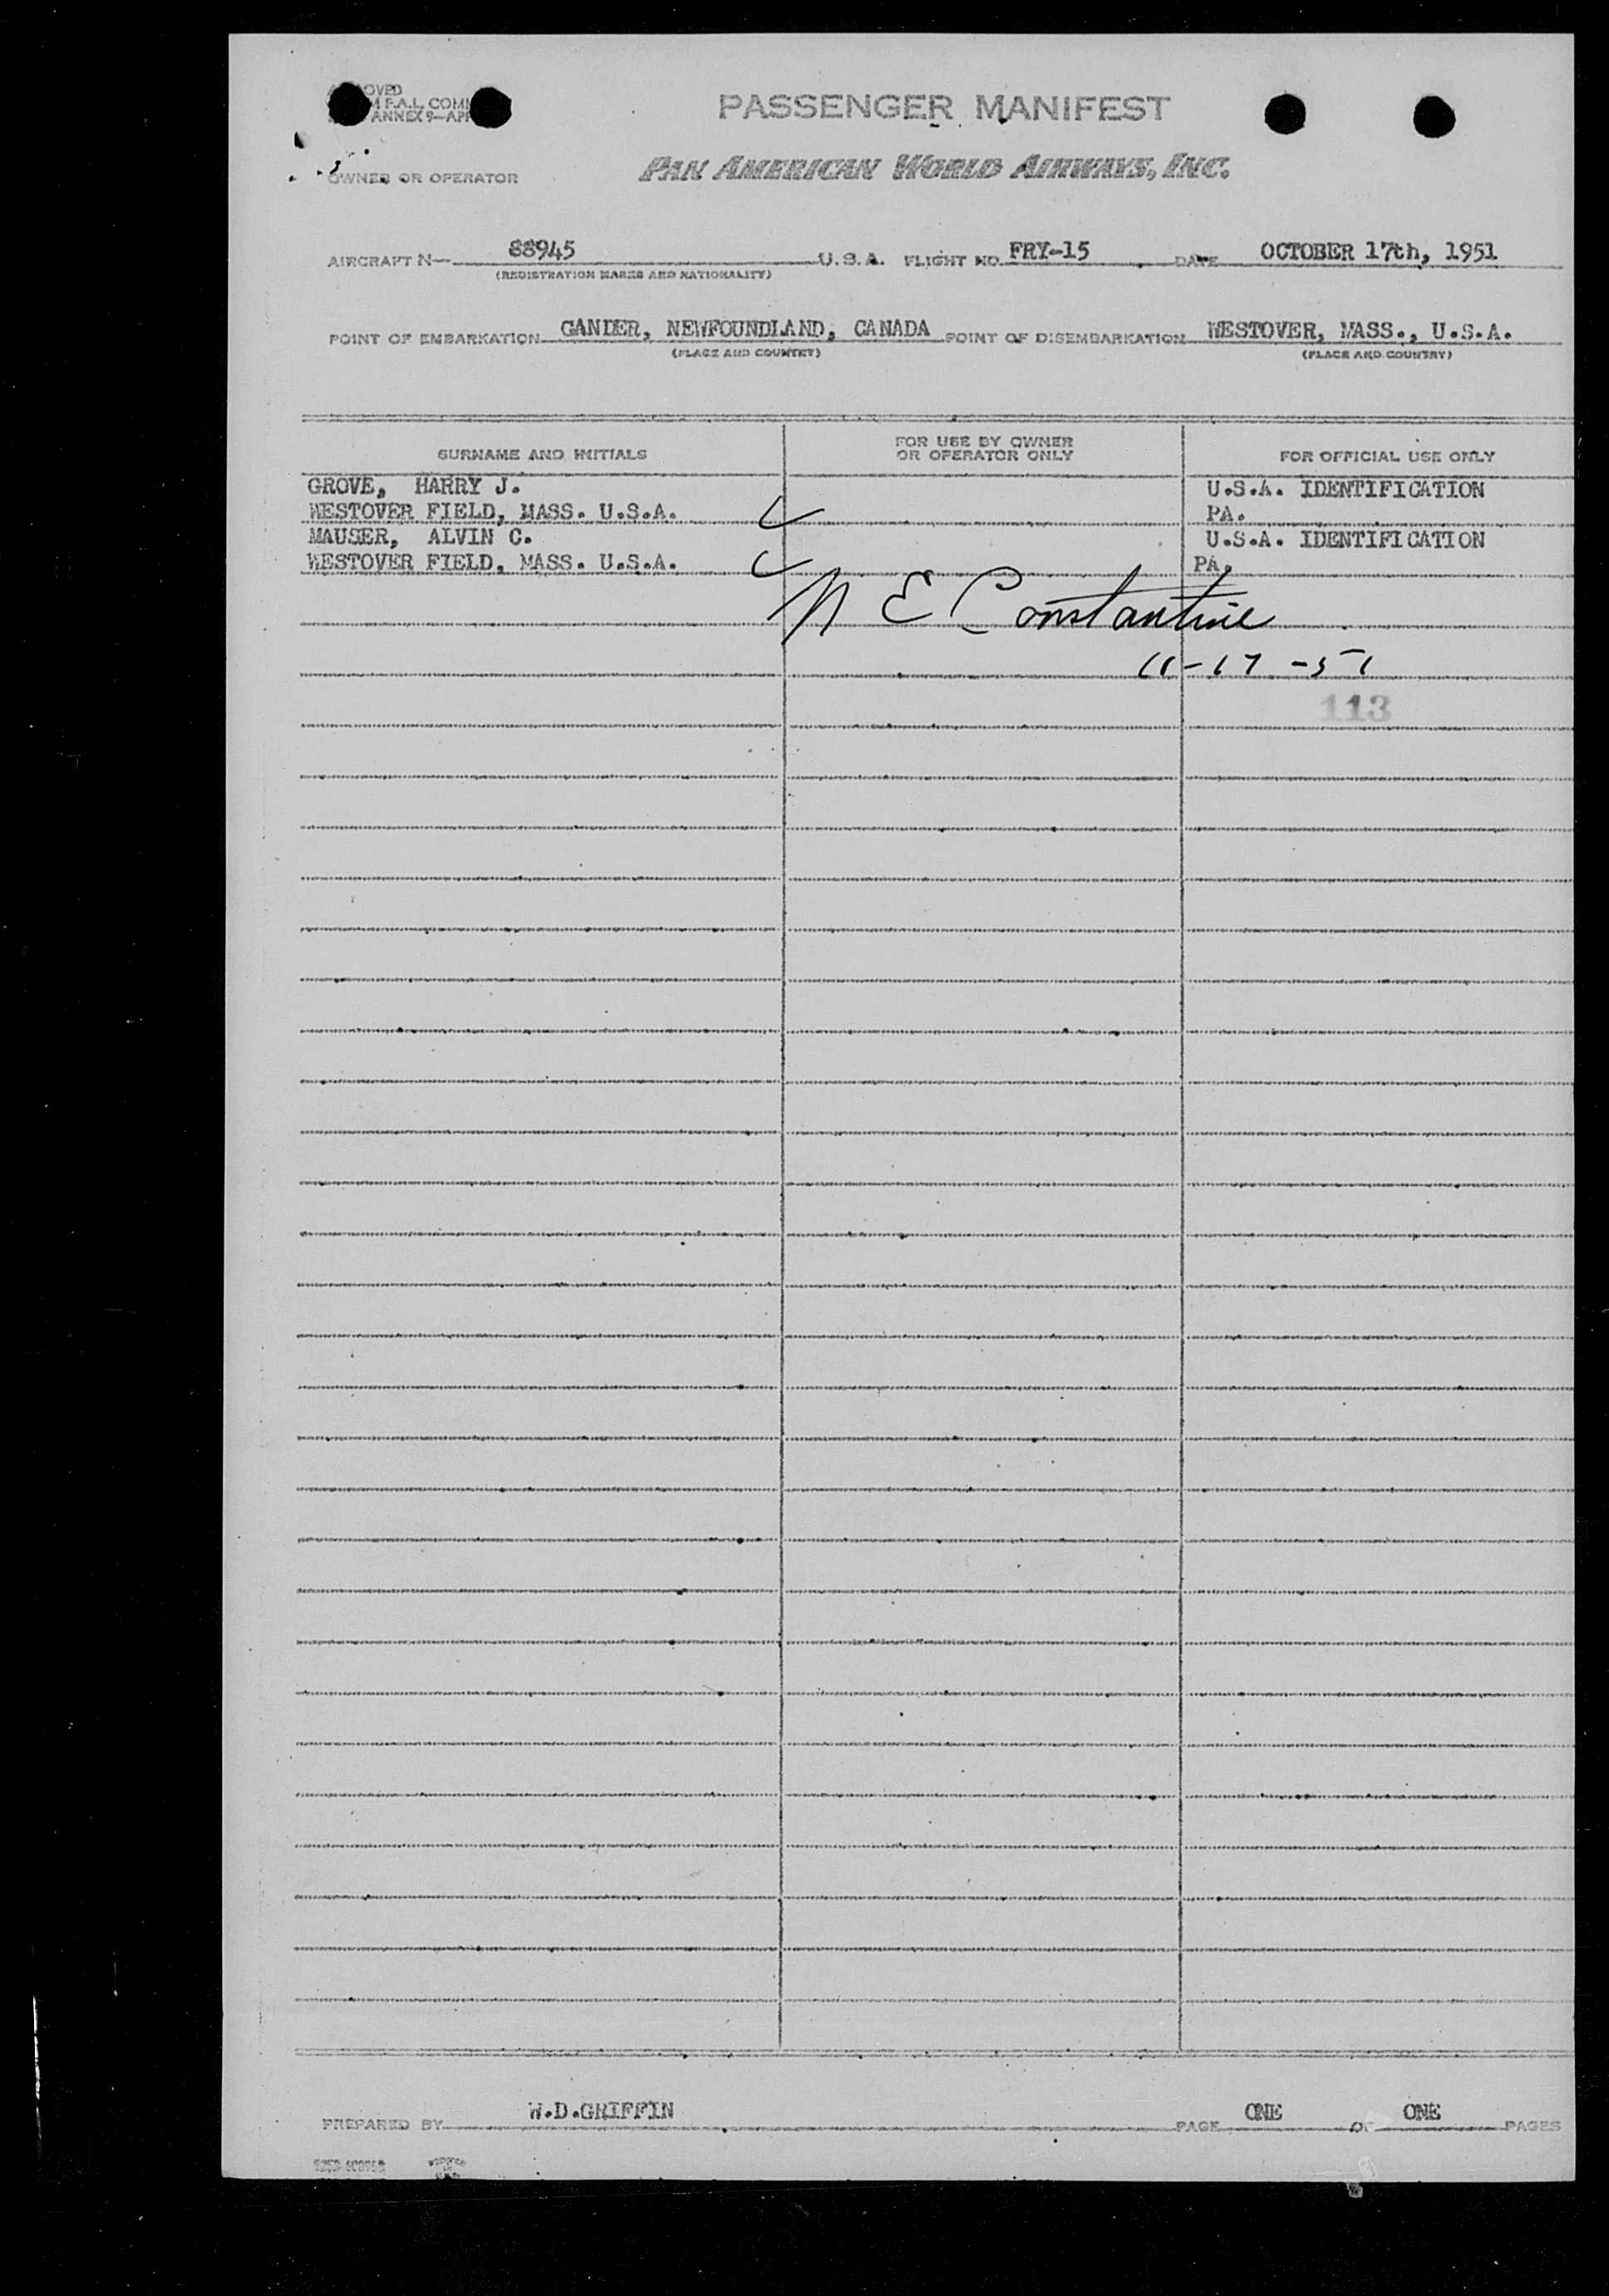 PASSENGER MANIFEST
OWNER OR OPERATOR PAN AMERICAN WORLD AIRWAYS, INC.
AIRCRAFT N— 88945 U.S.A. FLIGHT NO. FRY-15 DATE OCTOBER 17th, 1951
(REGISTRATION MARKS AND NATIONALITY)
POINT OF EMBARKATION GANDER, NEWFOUNDLAND, CANADA POINT OF DISEMBARKATION WESTOVER, MASS., U.S.A.
(PLACE AND COUNTRY) (PLACE AND COUNTRY)
SURNAME AND INITIALS FOR USE BY OWNER OR OPERATOR ONLY FOR OFFICIAL USE ONLY
GROVE, HARRY J. U.S.A. IDENTIFICATION
WESTOVER FIELD, MASS. U.S.A. PA.
MAUSER, ALVIN C. U.S.A. IDENTIFICATION
WESTOVER FIELD, MASS. U.S.A. PA.
N E Constantine
-17-51
113
PREPARED BY W.D.GRIFFIN PAGE ONE OF ONE PAGES